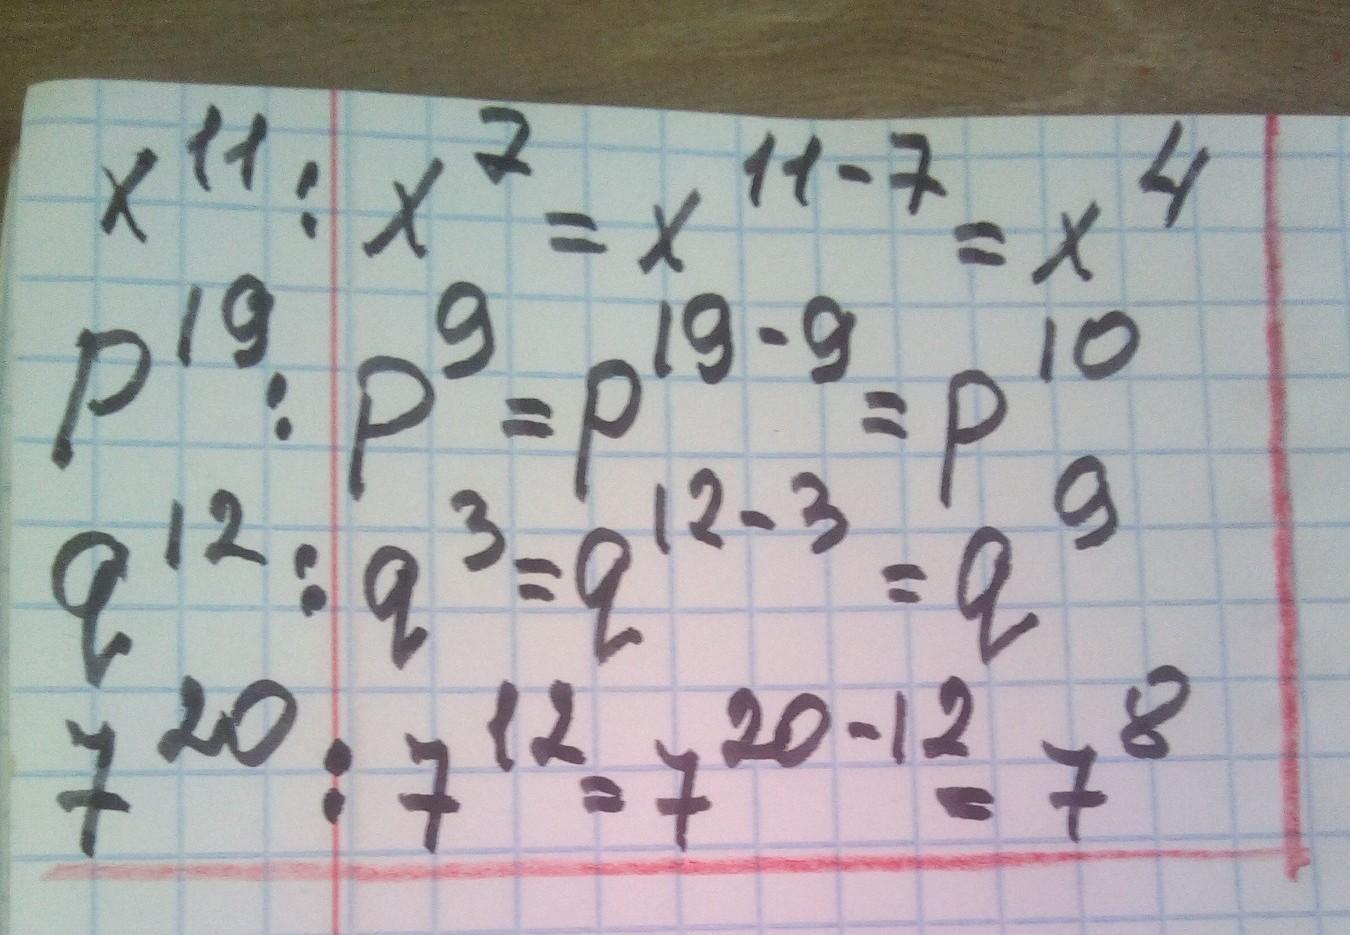 x¹¹ : x⁷ = x¹¹⁻⁷ = x⁴
p¹⁹ : p⁹ = p¹⁹⁻⁹ = p¹⁰
q¹² : q³ = q¹²⁻³ = q⁹
7²⁰ : 7¹² = 7²⁰⁻¹² = 7⁸